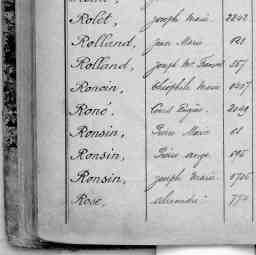 Rolet, Joseph Marie 2242
Rolland, Jean Marie 121
Rolland, Joseph Me 557
Ronsin, Théophile Marie
Roné, Louis Eugène 2049
Ronsin, Pierre Marie 11
Ronsin, Pierre ange 695
Ronsin, Joseph Marie 1705
Rose, alexandre 774